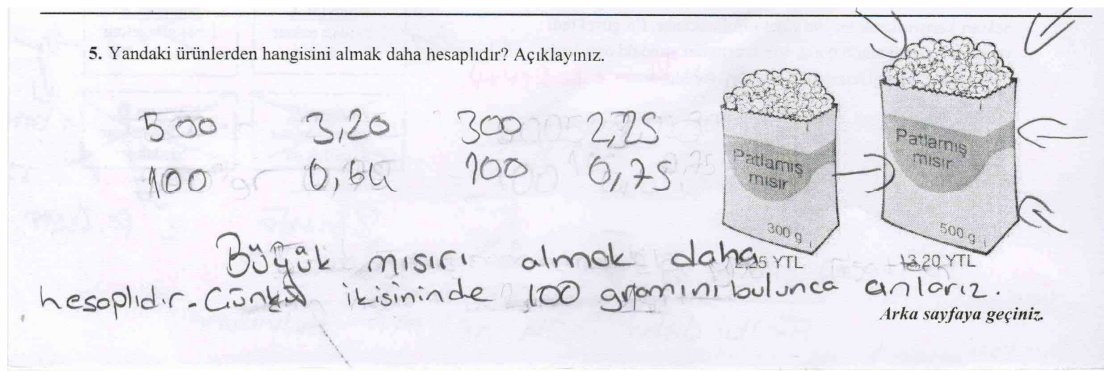 5. Yandaki ürünlerden hangisini almak daha hesaplıdır? Açıklayınız.
500 3,20 300 2,25
100 gr 0,64 100 0,75
Patlamış
mısır
300 g
Patlamış
mısır
500 g
YTL
3,20 YTL
Büyük mısırı almak daha
hesaplıdır. Çünkü ikisininde 100 gramını bulunca anlarız.
Arka sayfaya geçiniz.